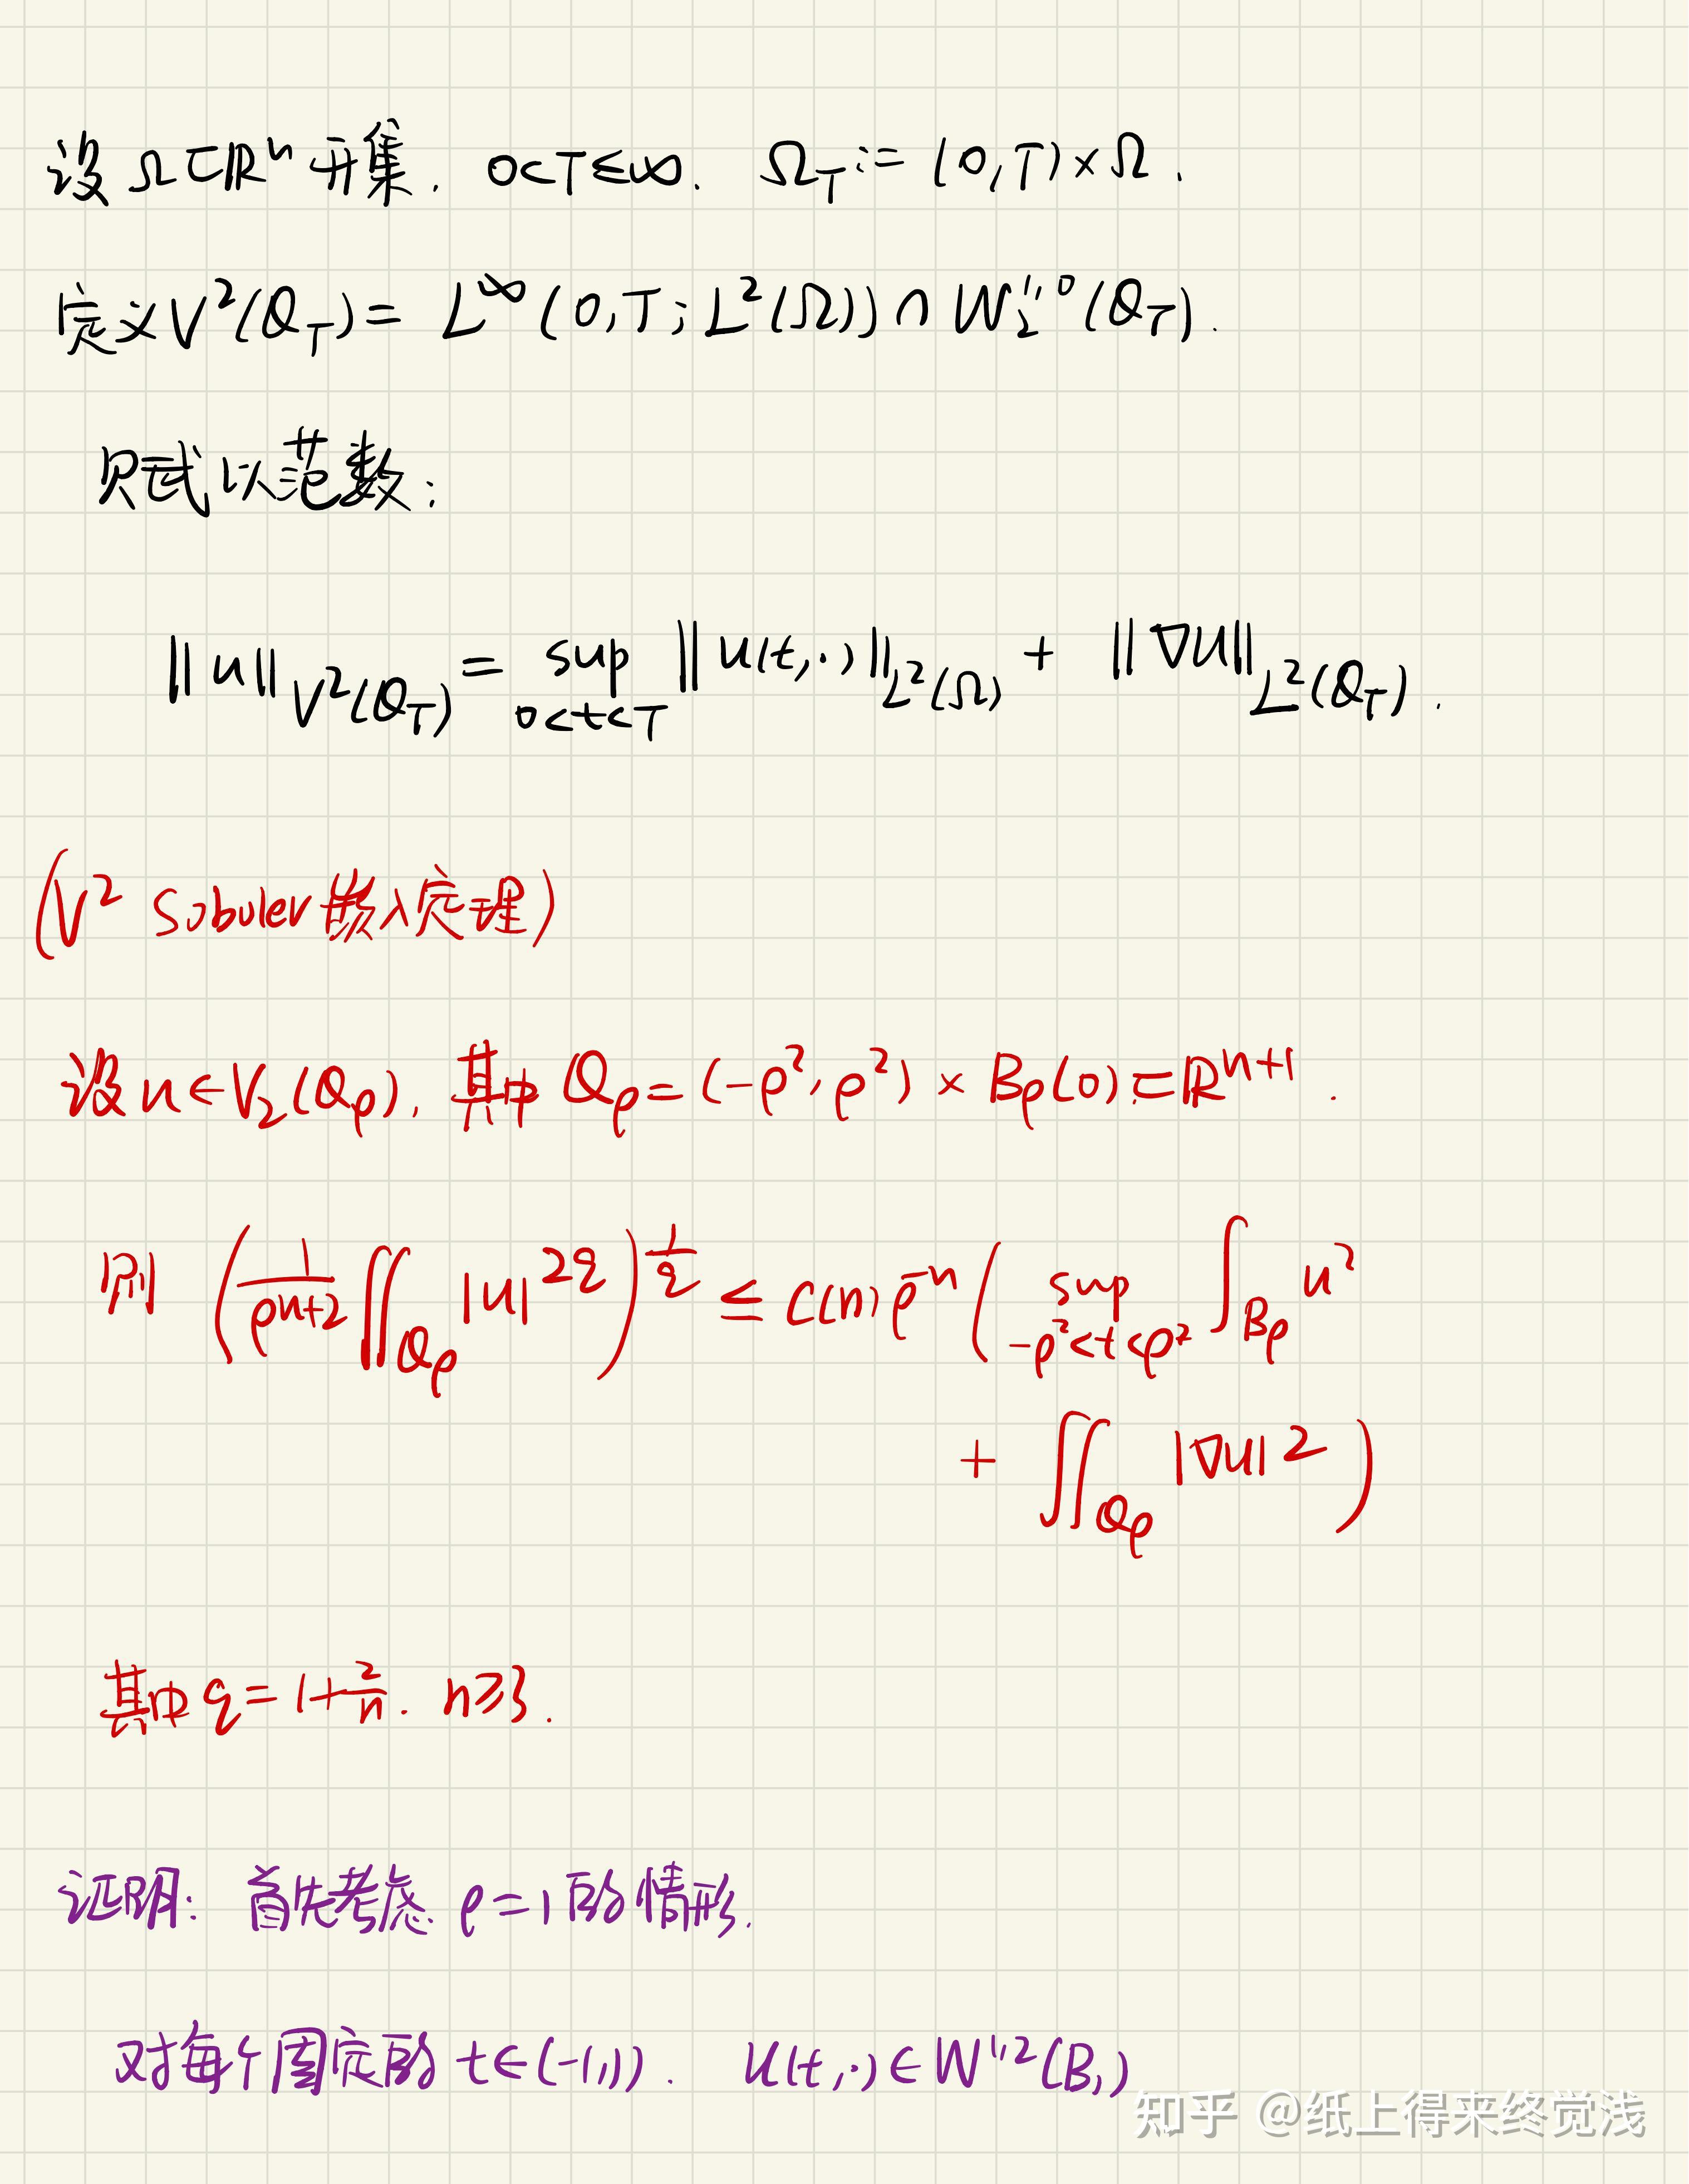 设 Ω⊂ℝⁿ 开集. 0<T≤∞. Ω_T := (0,T)×Ω.
定义 V²(Q_T) = L^∞(0,T; L²(Ω)) ∩ W₂^{1,0}(Q_T).
赋以范数:
‖u‖_{V²(Q_T)} = sup_{0<t<T} ‖u(t,·)‖_{L²(Ω)} + ‖∇u‖_{L²(Q_T)}.
(V² Sobolev 嵌入定理)
设 u∈V₂(Q_ρ), 其中 Q_ρ = (-ρ², ρ²) × B_ρ(0) ⊂ ℝ^{n+1}.
则 (1/ρ^{n+2} ∬_{Q_ρ} |u|^{2q})^{1/q} ≤ C(n) ρ^{-n} ( sup_{-ρ²<t<ρ²} ∫_{B_ρ} u²
+ ∬_{Q_ρ} |∇u|² )
其中 q = 1+2/n. n≥3.
证明: 首先考虑 ρ=1 的情形.
对每个固定的 t∈(-1,1). u(t,·)∈W^{1,2}(B₁)
知乎 @纸上得来终觉浅